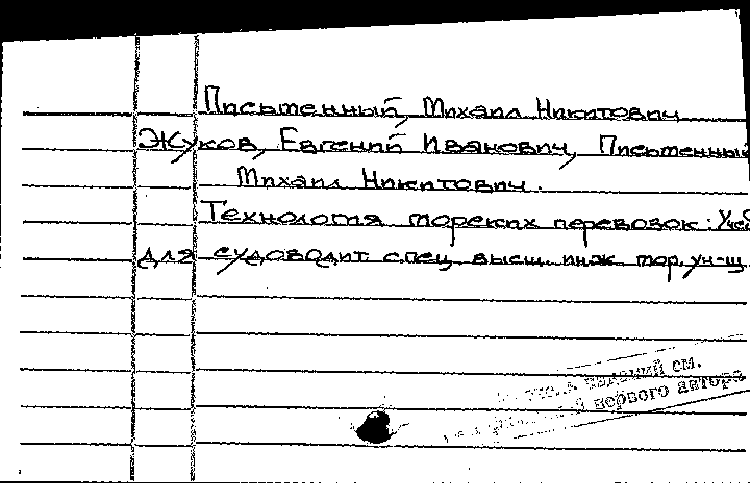 Письменный, Михаил Никитович
Жуков, Евгений Иванович, Письменный
Михаил Никитович.
Технология морских перевозок: Учеб
для судоводит. спец. высш. инж. мор. уч-щ
изданий см.
первого автора